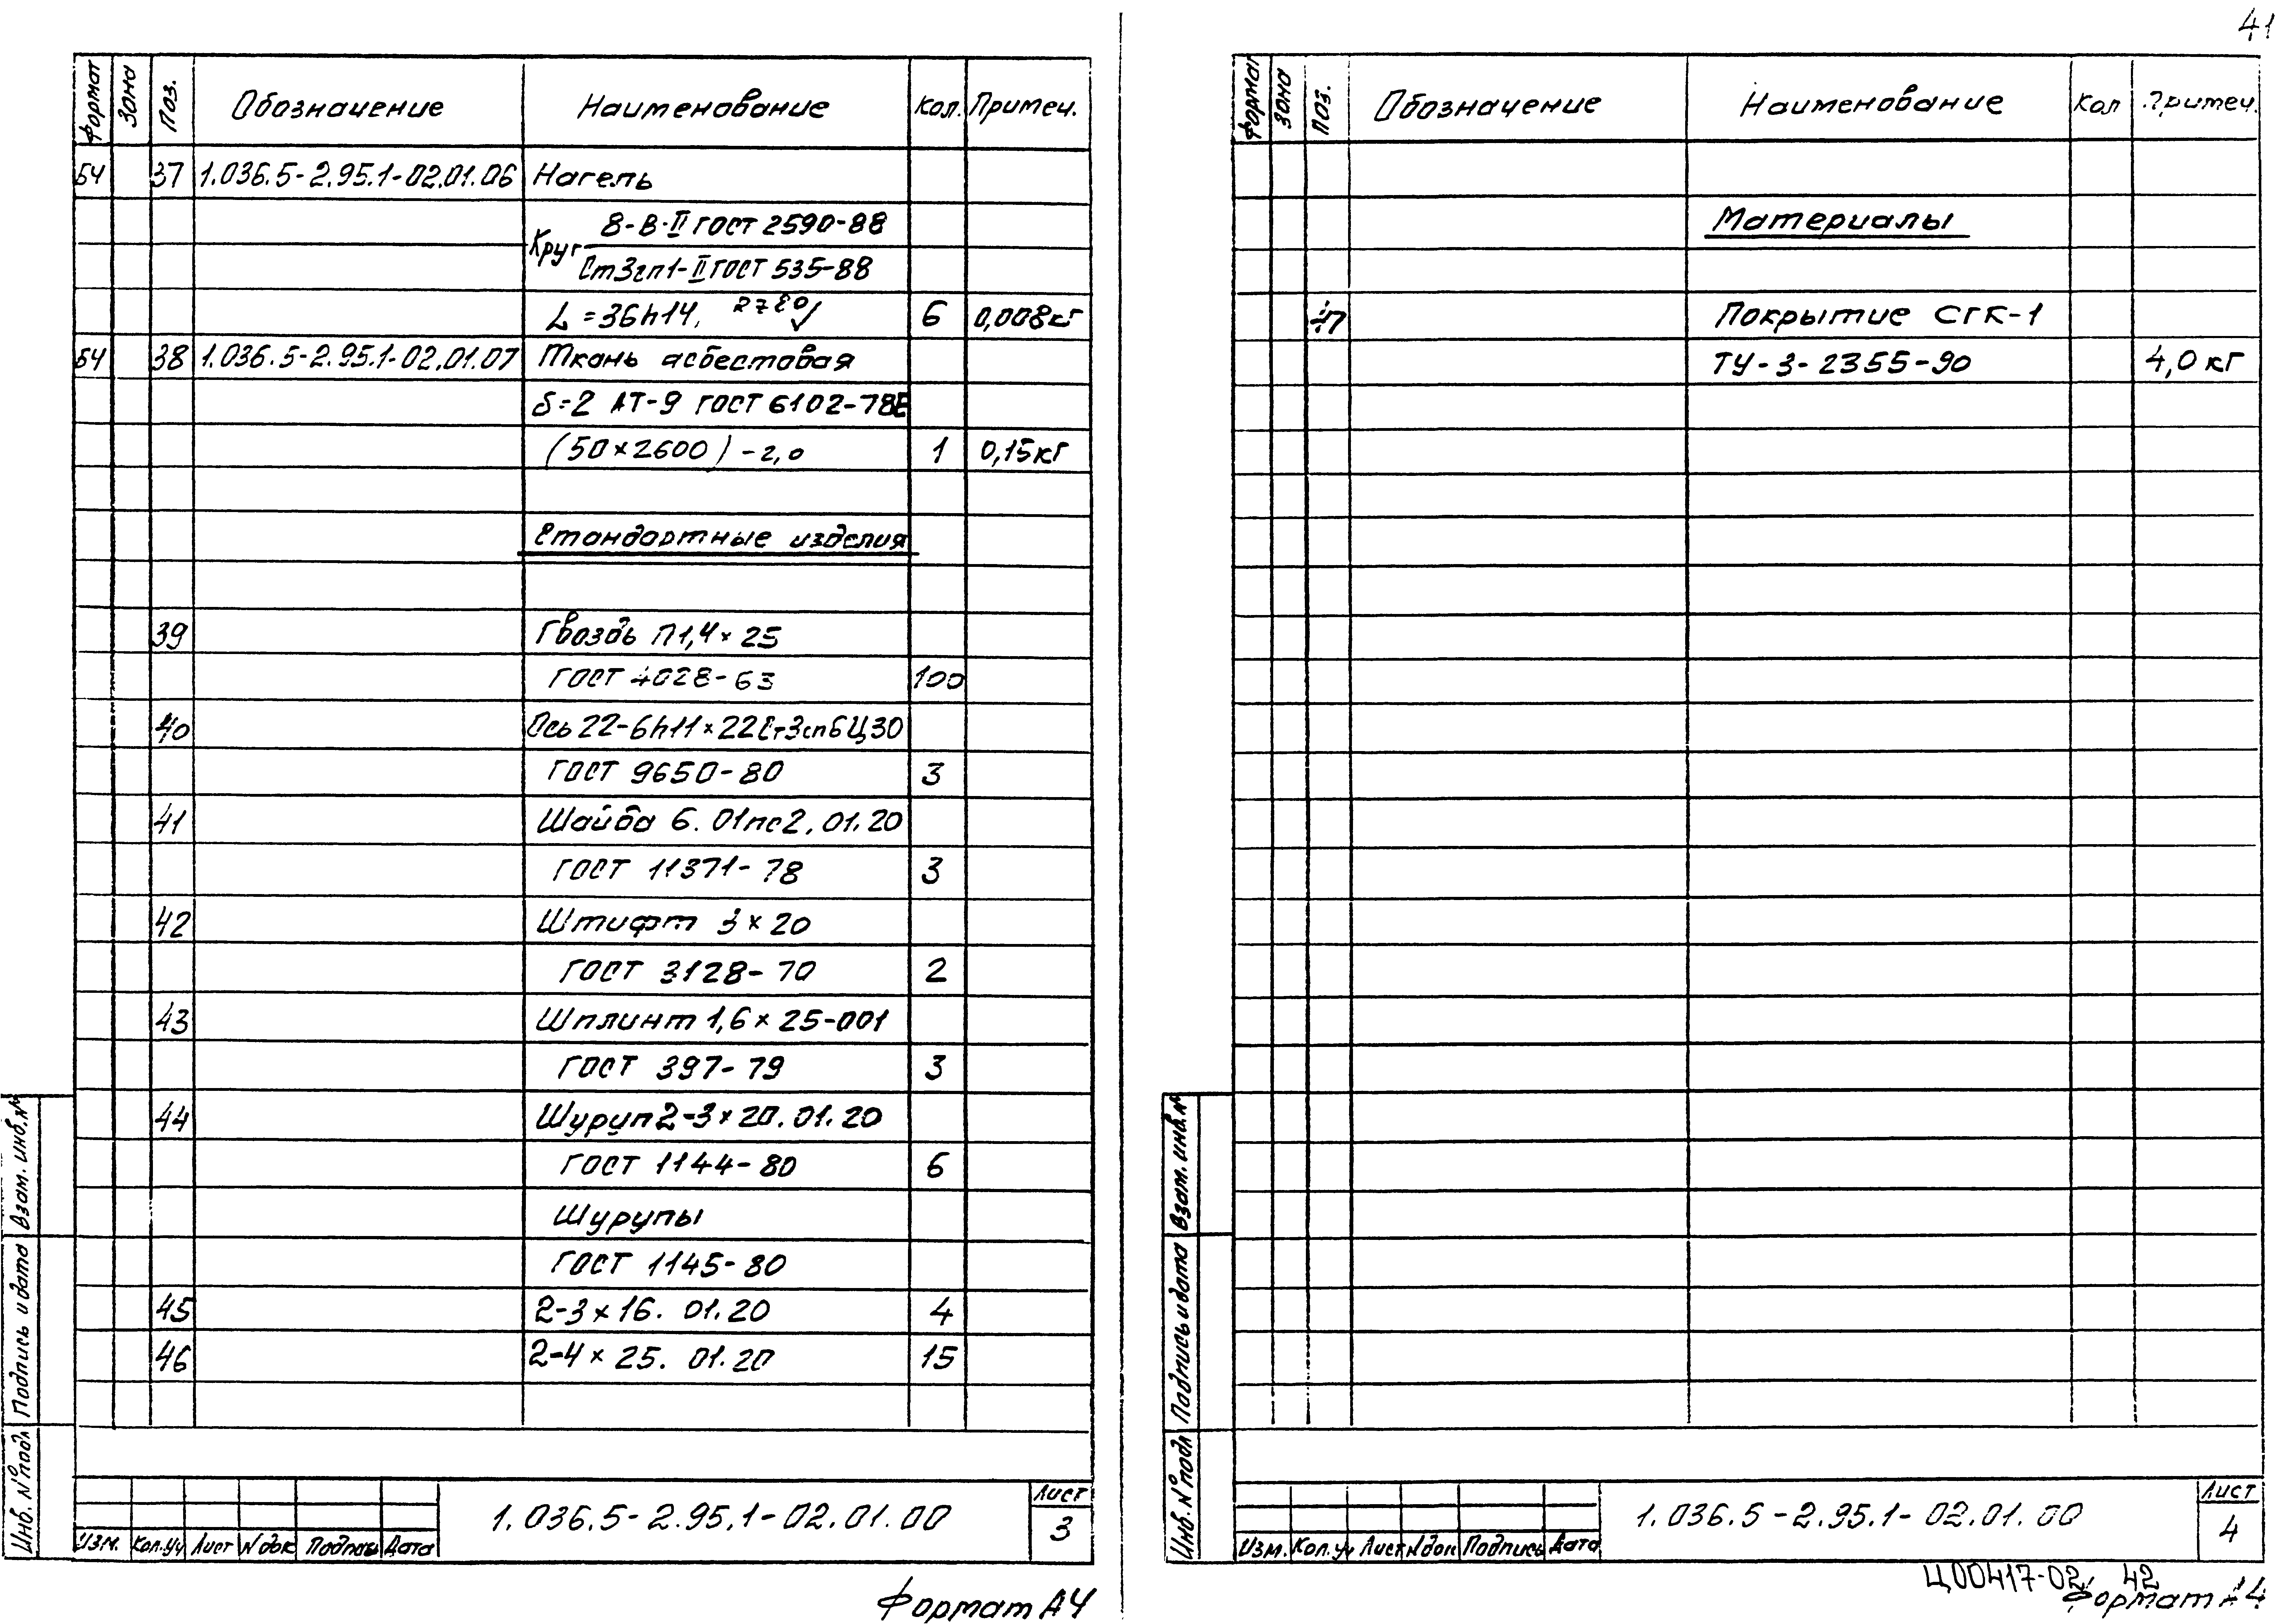 41
Формат Зона Поз. Обозначение Наименование Кол. Примеч.
БЧ 37 1.036.5-2.95.1-02.01.06 Нагель
Круг 8-В-II ГОСТ 2590-88
Ст3гп1-II ГОСТ 535-88
L=36h14, 6 0,008кг
БЧ 38 1.036.5-2.95.1-02.01.07 Ткань асбестовая
δ=2 АТ-9 ГОСТ 6102-78Е
(50×2600)-2,0 1 0,15кг
Стандартные изделия
39 Гвоздь П1,4×25
ГОСТ 4028-63 100
40 Ось 22-6h11×22Ст3сп6Ц30
ГОСТ 9650-80 3
41 Шайба 6.01пс2.01.20
ГОСТ 11371-78 3
42 Штифт 3×20
ГОСТ 3128-70 2
43 Шплинт 1,6×25-001
ГОСТ 397-79 3
44 Шуруп 2-3×20.01.20
ГОСТ 1144-80 6
Шурупы
ГОСТ 1145-80
45 2-3×16.01.20 4
46 2-4×25.01.20 15
Инв. № подл Подпись и дата Взам. инв. №
Изм. Кол.уч Лист № док Подпись Дата
1.036.5-2.95.1-02.01.00
Лист
3
Формат А4
Формат Зона Поз. Обозначение Наименование Кол Примеч.
Материалы
47 Покрытие СГК-1
ТУ-3-2355-90 4,0 кг
Инв. № подл Подпись и дата Взам. инв. №
Изм. Кол.уч Лист № док Подпись Дата
1.036.5-2.95.1-02.01.00
Лист
4
Ц00417-02 42
Формат А4